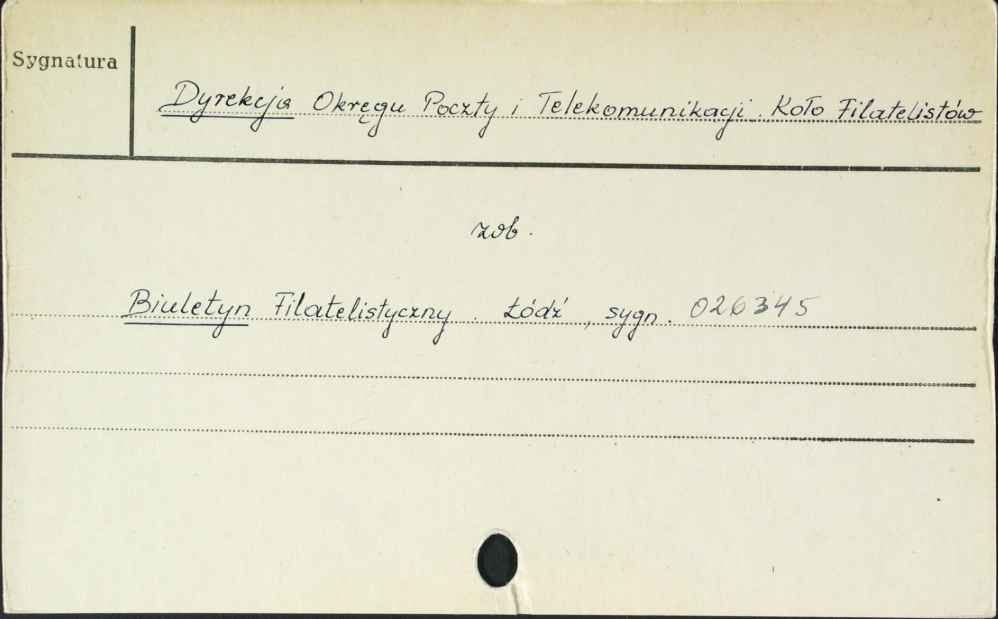 Sygnatura
Dyrekcja Okręgu Poczty i Telekomunikacji. Koło Filatelistów
zob.
Biuletyn Filatelistyczny. Łódź, sygn. 026345